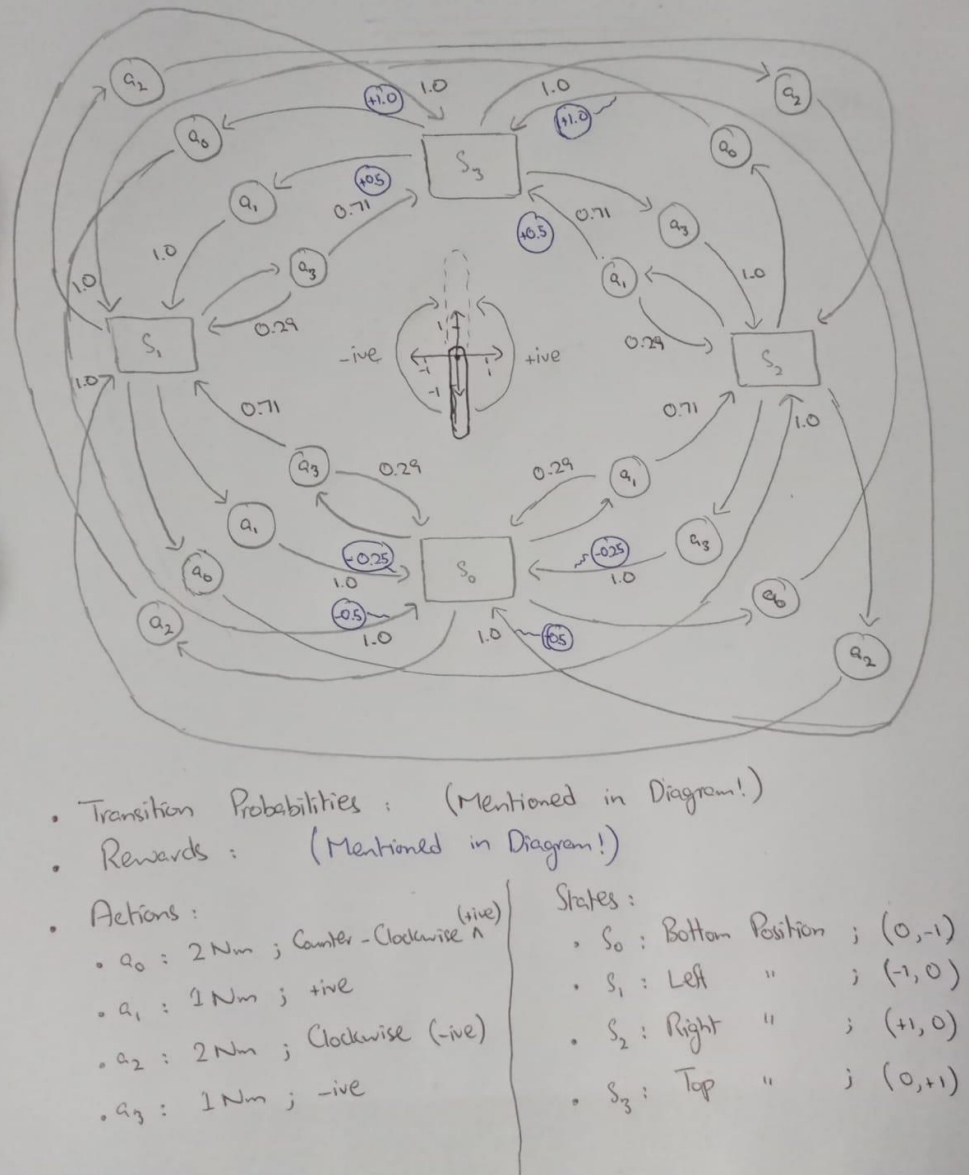 a2 1.0 1.0 a2
+1.0 +1.0
a0 a0
S3
+0.5
a1 0.71 0.71 a3
+0.5
1.0 a3 a1 1.0
1.0
0.29 0.29
S1 -ive 1 +ive S2
-1 1
1.0 -1
0.71 0.71 1.0
a3 0.29 0.29 a1
a1 a3
-0.25 -0.25
a0 1.0 S0 1.0
-0.5 a0
a2 1.0 1.0 a2
• Transition Probabilities : (Mentioned in Diagram!)
• Rewards : (Mentioned in Diagram!)
• Actions :
• a0 : 2 Nm ; Counter-Clockwise ^ (+ive)
• a1 : 1 Nm ; +ive
• a2 : 2 Nm ; Clockwise (-ive)
• a3 : 1 Nm ; -ive
States :
• S0 : Bottom Position ; (0,-1)
• S1 : Left " ; (-1,0)
• S2 : Right " ; (+1,0)
• S3 : Top " ; (0,+1)